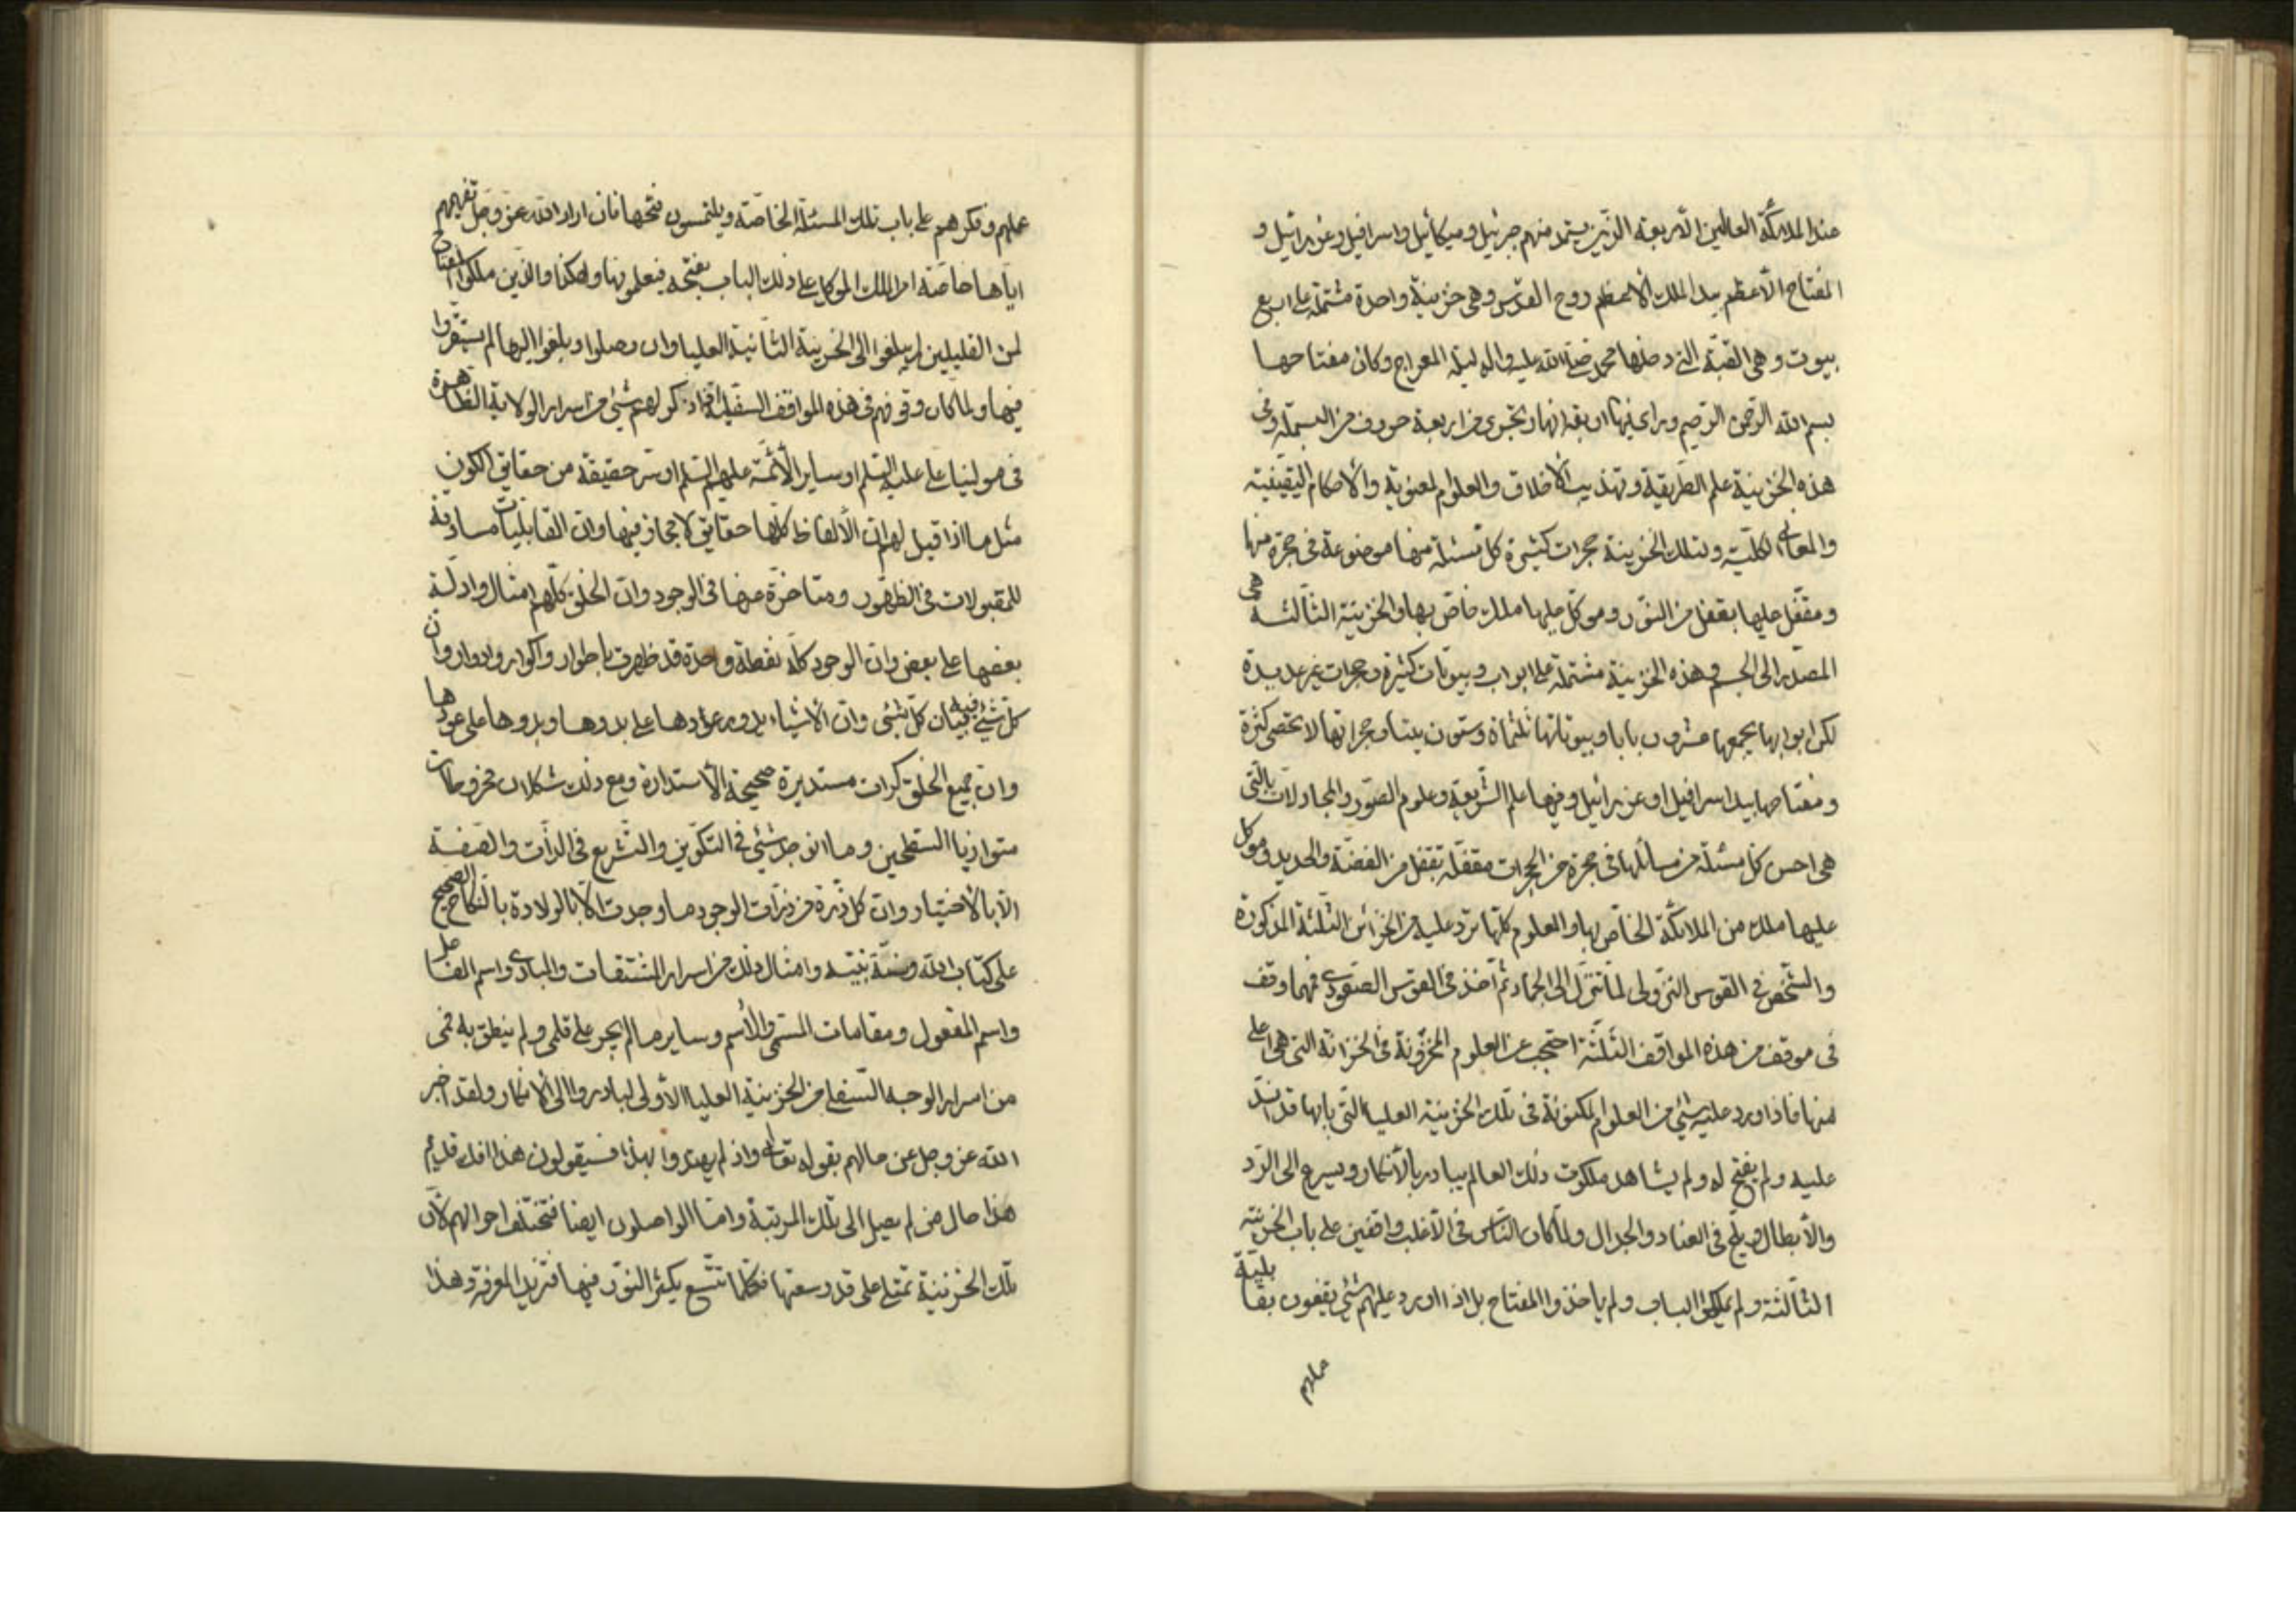 عند الملائكة العالين الأربعة الذين يستمد منهم جبرئيل وميكائيل واسرافيل وعزرائيل و
المفتاح الأعظم بيد الملك الأعظم روح القدس وهي خزينة واحدة مشتملة على اربع
بيوت وهي القبة التي دخلها محمد صلى الله عليه واله ليلة المعراج وكان مفتاحها
بسم الله الرحمن الرحيم وراى فيها اربعة انهار تجري من اربعة حروف من البسملة وفي
هذه الخزينة علم الطريقة وتهذيب الأخلاق والعلوم المعنوية والأحكام اليقينية
والمعاني الكلية ولتلك الخزينة حجرات كثيرة كل مسئلة منها موضوعة في حجرة منها
ومقفل عليها بقفل من النور وموكل عليها ملك خاص بها والخزينة الثالثة هي
الصدر الى الجسم وهذه الخزينة مشتملة على ابواب وبيوتات كثيرة وحجرات غير عديدة
لكن ابوابها يجمعها عشرون بابا وبيوتاتها ثلثمائة وستون بيتا وحجراتها لا تحصى كثرة
ومفتاحها بيد اسرافيل او عزرائيل وفيها علم الشريعة وعلوم الصور والمجادلات بالتي
هي احسن كل مسئلة من مسائلها في حجرة من الحجرات مقفلة بقفل من الفضة والحديد وموكل
عليها ملك من الملائكة الخاص بها والعلوم كلها ترد عليه من الخزائن الثلثة المذكورة
والشخص في القوس النزولي لما تنزل الى الجماد ثم اخذ في القوس الصعودي فمهما وقف
في موقف من هذه المواقف الثلثة احتجب عن العلوم المخزونة في الخزانة التي هي اعلى
منها فاذا ورد عليه شيء من العلوم المكنونة في تلك الخزينة العليا التي بابها قد انسد
عليه ولم يفتح له ولم يشاهد ملكوت ذلك العالم يبادر بالأنكار ويسرع الى الرد
والأبطال ويلج في العناد والجدال ولما كان الناس في الأغلب واقفين على باب الخزينة
الثالثة ولم يملكوا الباب ولم ياخذوا المفتاح بل اذا اورد عليهم شيء يقفون بقابلية
علهم وفكرهم على باب تلك المسئلة الخاصة ويلتمسون فتحها فان اراد الله عز وجل تفهيمهم
اياها خاصة امر الملك الموكل على ذلك الباب بفتحه فيعلمونها وهكذا والذين ملكوا المفتاح
لمن القليلين لم يبلغوا الى الخزينة الثانية العليا وان وصلوا وبلغوا اليها لم يستقروا
فيها ولما كان وقوفهم في هذه المواقف السفلية فاذا ذكر لهم شيء من اسرار الولاية الظاهرة
في مولينا علي عليه السلم او ساير الأئمة عليهم السلم او سر حقيقة من حقايق الكون
مثل ما اذا قيل لهم ان الألفاظ كلها حقايق لا مجاز فيها وان القابليات مساوقة
للمقبولات في الظهور ومتاخرة عنها في الوجود وان الخلق كلهم امثال وادلة
بعضها على بعض وان الوجود كله نقطة واحدة قد ظهرت باطوار واكوار وادوار وان
كل شيء فيه تبيان كل شيء وان الأشياء يدور عودها على بدوها وبدوها على عودها
وان جميع الخلق كرات مستديرة صحيحة الأستدارة ومع ذلك شكلان مخروطان
متوازيا السطحين وما انوجد شيء في التكوين والتشريع في الذات والصفة
الا بالأختيار وان كل ذرة من ذرات الوجود ما وجدت الا بالولادة بالنكاح الصحيح
على كتاب الله وسنة نبيه وامثال ذلك من اسرار المشتقات والمبادي واسم الفاعل
واسم المفعول ومقامات المسمى والأسم وساير ما لم يجر على قلمي ولم ينطق به فمي
من اسرار الوجه السفلي من الخزينة العليا الأولى لبادروا الى الأنكار ولقد اخبر
الله عز وجل عن حالهم بقوله تعالى واذ لم يهتدوا بهذا فسيقولون هذا افك قديم
هذا حال من لم يصل الى تلك المرتبة واما الواصلون ايضا فتختلف احوالهم لأن
تلك الخزينة تمتلي على قدر وسعتها فكلما تتسع يكثر النور فيها فتزيد المعرفة وهذا